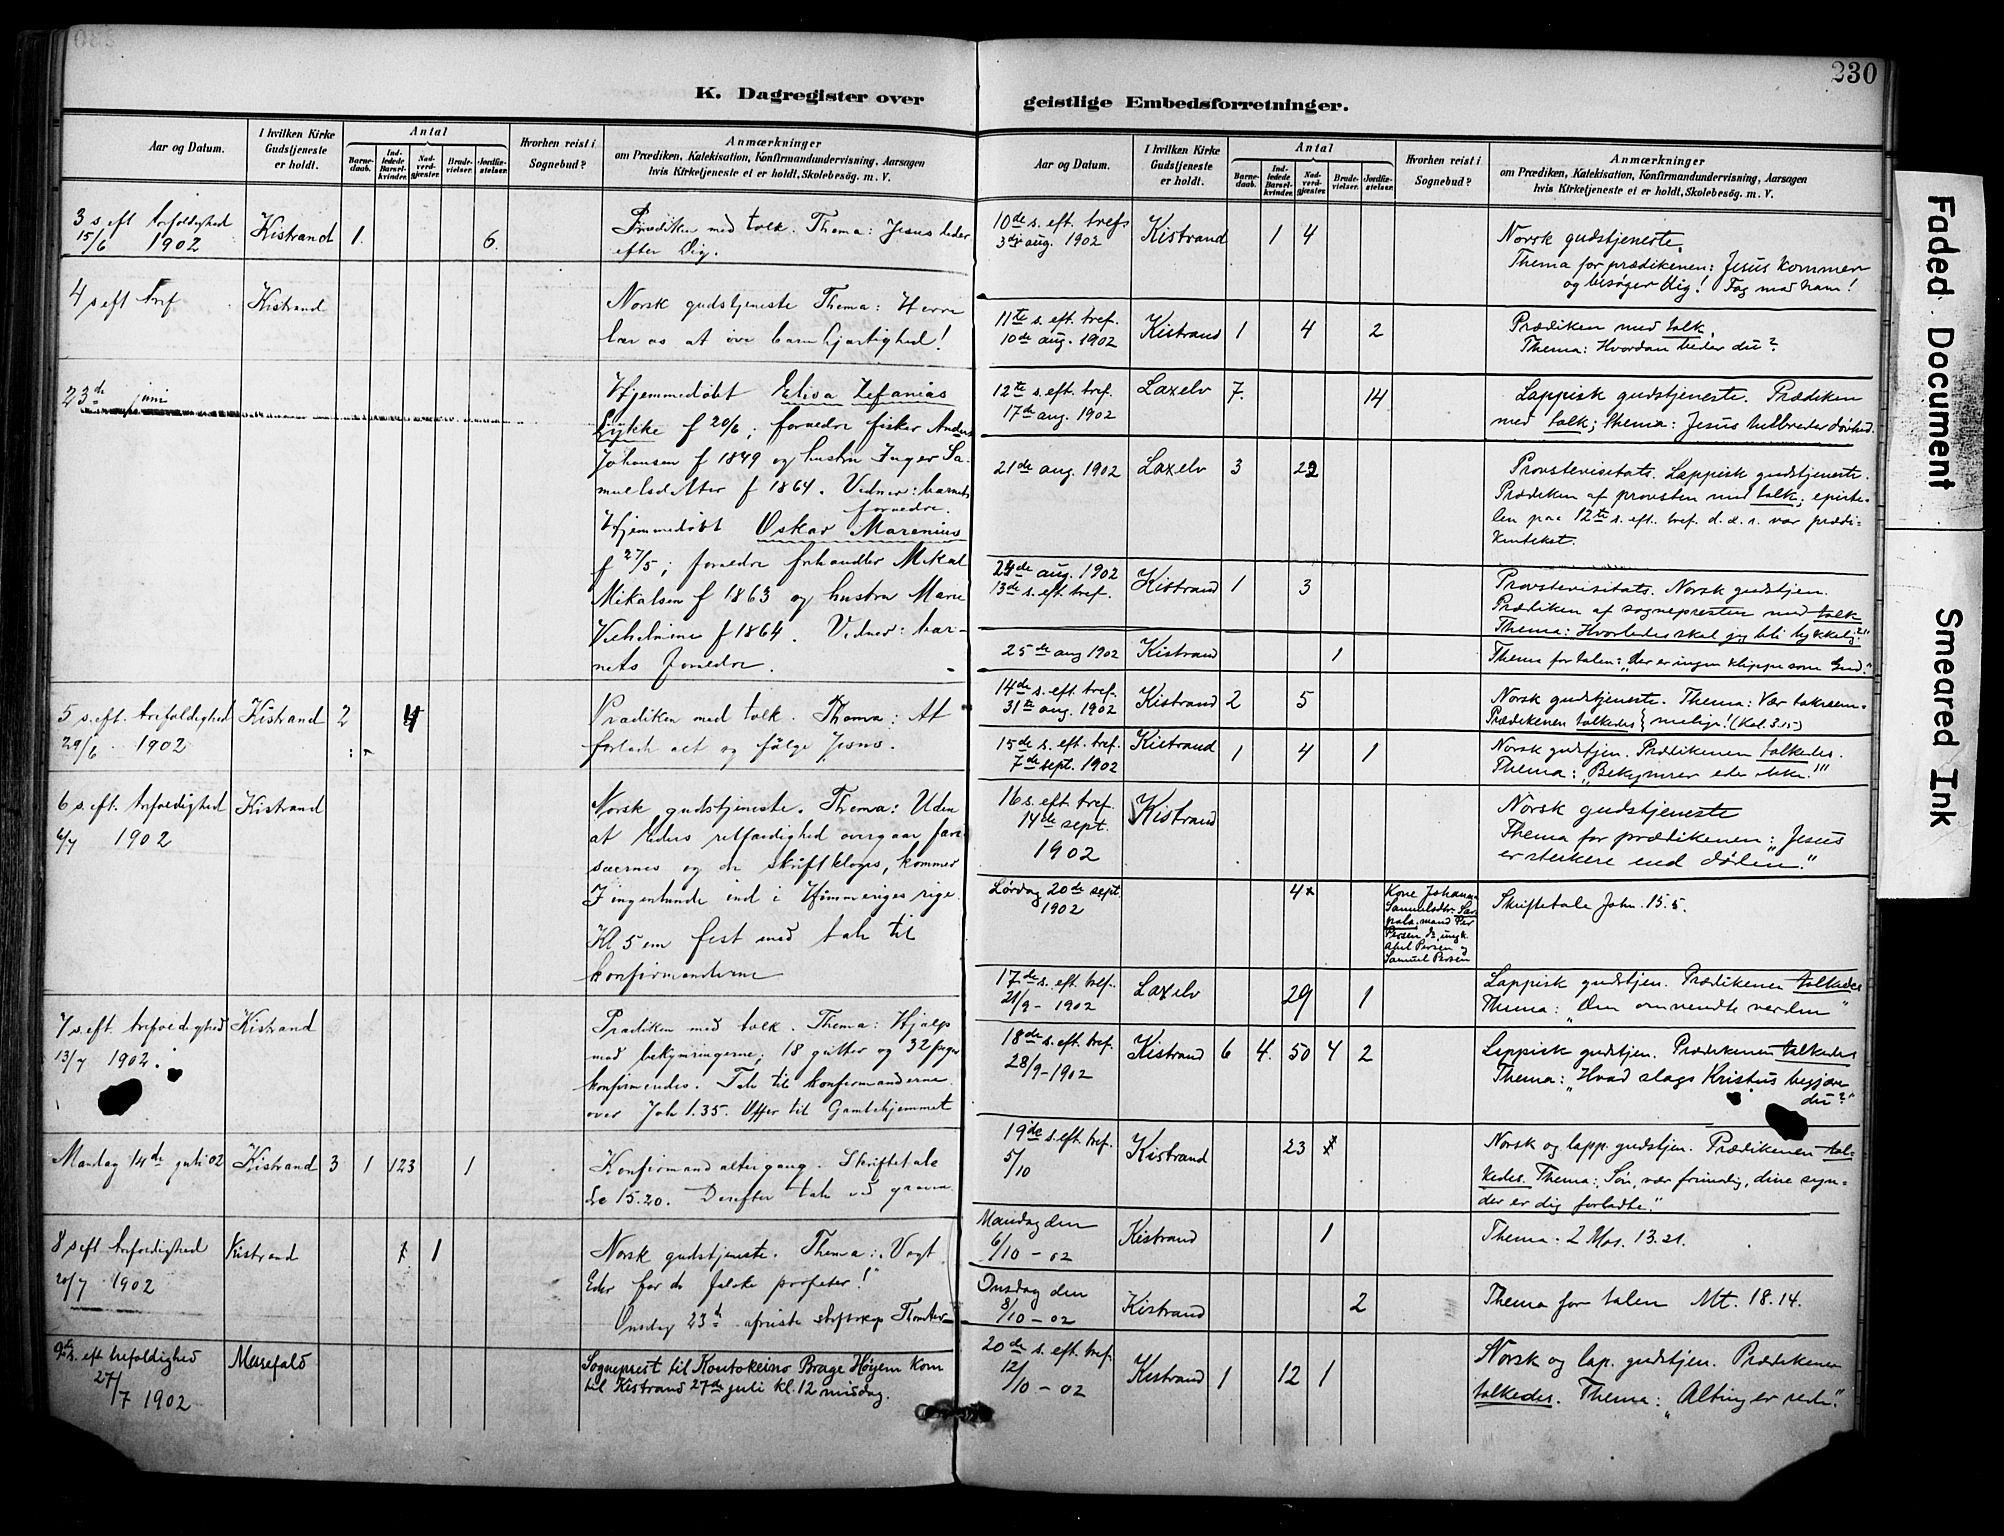 230
K. Dagregister over
Aar og Datum.
I hvilken Kirke
Gudstjeneste
er holdt.
Antal
Barne-
daab.
Ind-
ledede
Barsel-
kvinder.
Nad-
verd-
gjester.
Brude-
vielser.
Jordfæ-
stelser.
Hvorhen reist i
Sognebud?
Anmærkninger
om Prædiken, Katekisation, Konfirmandundervisning, Aarsagen
hvis Kirketjeneste ei er holdt, Skolebesøg. m. V.
3 s. eft trefoldighed Kistrand 1. 6. Prædiken med tolk. Thema: Jesus leder
15/6 1902 efter Dig.
4 s eft tref Kistrand Norsk gudstjeneste Thema: Herre
lær os at øve barmhjertighed!
23de juni Hjemmedøbt Elisa Zefanias
Lykke f 20/6; forældre fisker Anders
Johansen f 1849 og hustru Inger Sa-
muelsdatter f 1864. Vidner: barnets
forældre.
Hjemmedøbt Oskar Marenius
f 27/5; forældre frhandler Mikal
Mikalsen f 1863 og hustru Marie
Vilhelmine f 1864. Vidner: bar-
nets forældre.
5 s. eft. trefoldighed Kistrand 2 4 Prædiken med tolk. Thema: At
29/6 1902 forlade alt og følge Jesus.
6 s. eft. trefoldighed Kistrand Norsk gudstjeneste. Thema: Uden
6/7 1902 at Eders retfærdighed overgaar fari-
sæernes og de skriftkloges, kommer
I ingenlunde ind i Himmeriges rige.
Kl 5 em fest med tale til
konfirmanderne
7 s. eft. trefoldighed Kistrand Prædiken med tolk. Thema: Hjælp
13/7 1902. mod bekymringerne; 18 gutter og 32 piger
konfirmeredes. Tale til konfirmanderne
over Joh 1.35. Offer til Gamlehjemmet
Mandag 14de juli 02 Kistrand 3 1 123 1 Konfirmandaltergang. Skriftetale
Lc 15.20. Derefter tale ved graven
8 s eft trefoldighed Kistrand 1 Norsk gudstjeneste. Thema: Vogt
20/7 1902 Eder for de falske profeter!
Onsdag 23de
9de s. eft trefoldighed Messefald Sogneprest til Koutokeino Brage Høyem kom
27/7 1902 til Kistrand 27de juli kl. 12 middag.
geistlige Embedsforretninger.
Aar og Datum.
I hvilken Kirke
Gudstjeneste
er holdt.
Antal
Barne-
daab.
Ind-
ledede
Barsel-
kvinder.
Nad-
verd-
gjester.
Brude-
vielser.
Jordfæ-
stelser.
Hvorhen reist i
Sognebud?
Anmærkninger
om Prædiken, Katekisation, Konfirmandundervisning, Aarsagen
hvis Kirketjeneste ei er holdt, Skolebesøg. m. V.
10de s. eft. trefs Kistrand 1 4 Norsk gudstjeneste.
3die aug. 1902 Thema for prædikenen: Jesus kommer
og besøger dig! Tag mod ham!
11te s. eft. tref. Kistrand 1 4 2 Prædiken med tolk.
10de aug. 1902 Thema: Hvordan beder du?
12te s. eft. tref. Laxelv 7. 14 Lappisk gudstjeneste. Prædiken
17de aug. 1902 med tolk; thema: Jesus helbreder døvhed.
21de aug. 1902 Laxelv 3 22 Provstevisitats. Lappisk gudstjeneste.
Prædiken af provsten med tolk; episte-
len paa 12te s. eft. tref. d. a. s. var prædi-
kentekst.
24de aug. 1902 Kistrand 1 3 Provstevisitats. Norsk gudstjen.
13de s. eft. tref. Prædiken af sognepresten med tolk
Thema: Hvorledes skal jeg bli lykkelig?"
25de aug 1902 Kistrand 1 Thema for talen: "Der er ingen klippe som Gud."
14de s. eft. tref. Kistrand 2 5 Norsk gudstjeneste. Thema: Vær taknem-
31te aug. 1902 Prædikenen tolkedes } melige! (Kol. 3.15)
15de s. eft. tref. Kistrand 1 4 1 Norsk gudstjen. Prædikenen tolkedes.
7de sept. 1902 Thema: "Bekymrer eder ikke!"
16 s. eft tref. Kistrand Norsk gudstjeneste
14de sept. Thema for prædikenen: "Jesus
1902 er sterkere end døden."
Lørdag 20de sept. 4x Kone Johanna Skriftetale Joh. 15.5.
1902 Samuelsdtr.
mand Per
Persen
Samuel Persen
17de s. eft. tref. Laxelv 29 1 Lappisk gudstjen. Prædikenen tolkedes
21/9 - 1902 Thema: "Den omvendte verden"
18de s. eft. tref. Kistrand 6 4. 50 4 2 Lappisk gudstjen. Prædikenen tolkedes
28/9 - 1902 Thema: "Hvad slags Kristus begjærer
du?"
19de s. eft. tref. Kistrand 23 Norsk og lapp. gudstjen. Prædikenen tol-
5/10 kedes. Thema: "Søn, vær frimodig, dine syn-
der er dig forladte."
Mandag den Kistrand 1 Thema: 2 Mos. 13.21.
6/10 - 02
Onsdag den Kistrand 2 Thema for talen Mt. 18.14.
8/10 - 02
20de s. eft. tref. Kistrand 1 12 1 Norsk og lap. gudstjen. Prædikenen
12/10 - 02 tolkedes. Thema: "Alting er rede."
Faded Document
Smeared Ink